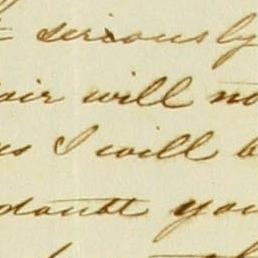 seriously
air will no
as I will b
doubt you